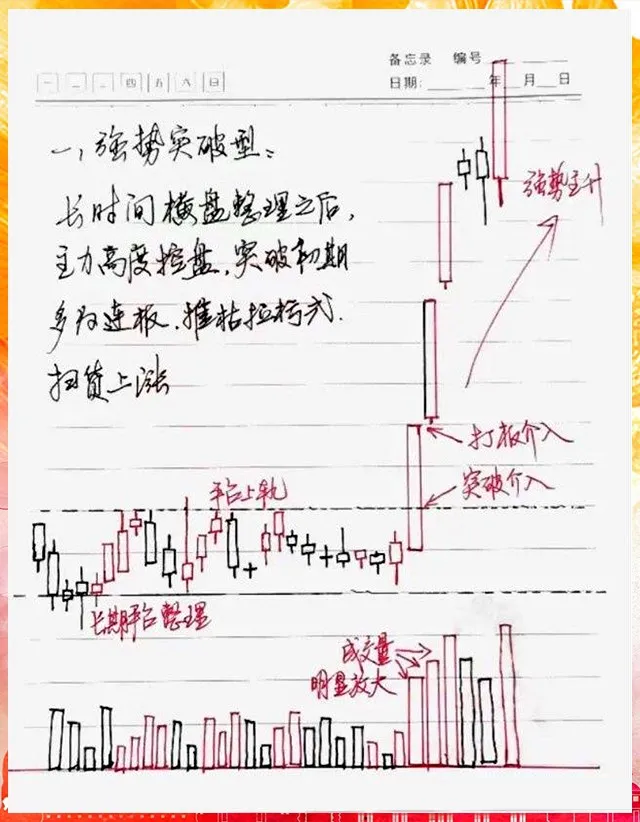 备忘录 编号
一 二 三 四 五 六 日
日期: 年 月 日
一、强势突破型:
长时间横盘整理之后,
主力高度控盘,突破初期
多为连板、推粘拉榨式
扫货上涨
强势主升
打板介入
突破介入
平台上轨
长期平台整理
成交量
明显放大